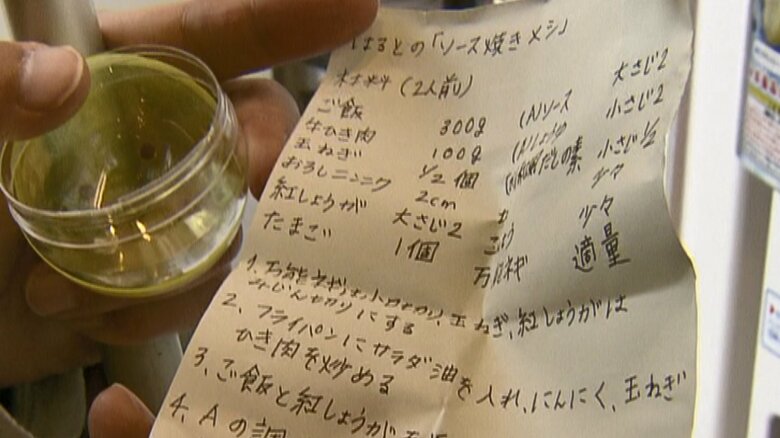 はるとの「ソース焼きメシ」
材料(2人前)
ご飯 300g
牛ひき肉 100g
玉ねぎ 1/2個
おろしニンニク 2cm
紅しょうが 大さじ2
たまご 1個
(A)ソース 大さじ2
(A)しょうゆ 小さじ2
だしの素 小さじ1/2
少々
こしょう 少々
万能ネギ 適量
1、万能ネギを小口切り、玉ねぎ、紅しょうがは
みじん切りにする
2、フライパンにサラダ油を入れ、にんにく、玉ねぎ
ひき肉を炒める
3、ご飯と紅しょうがを
4、Aの調